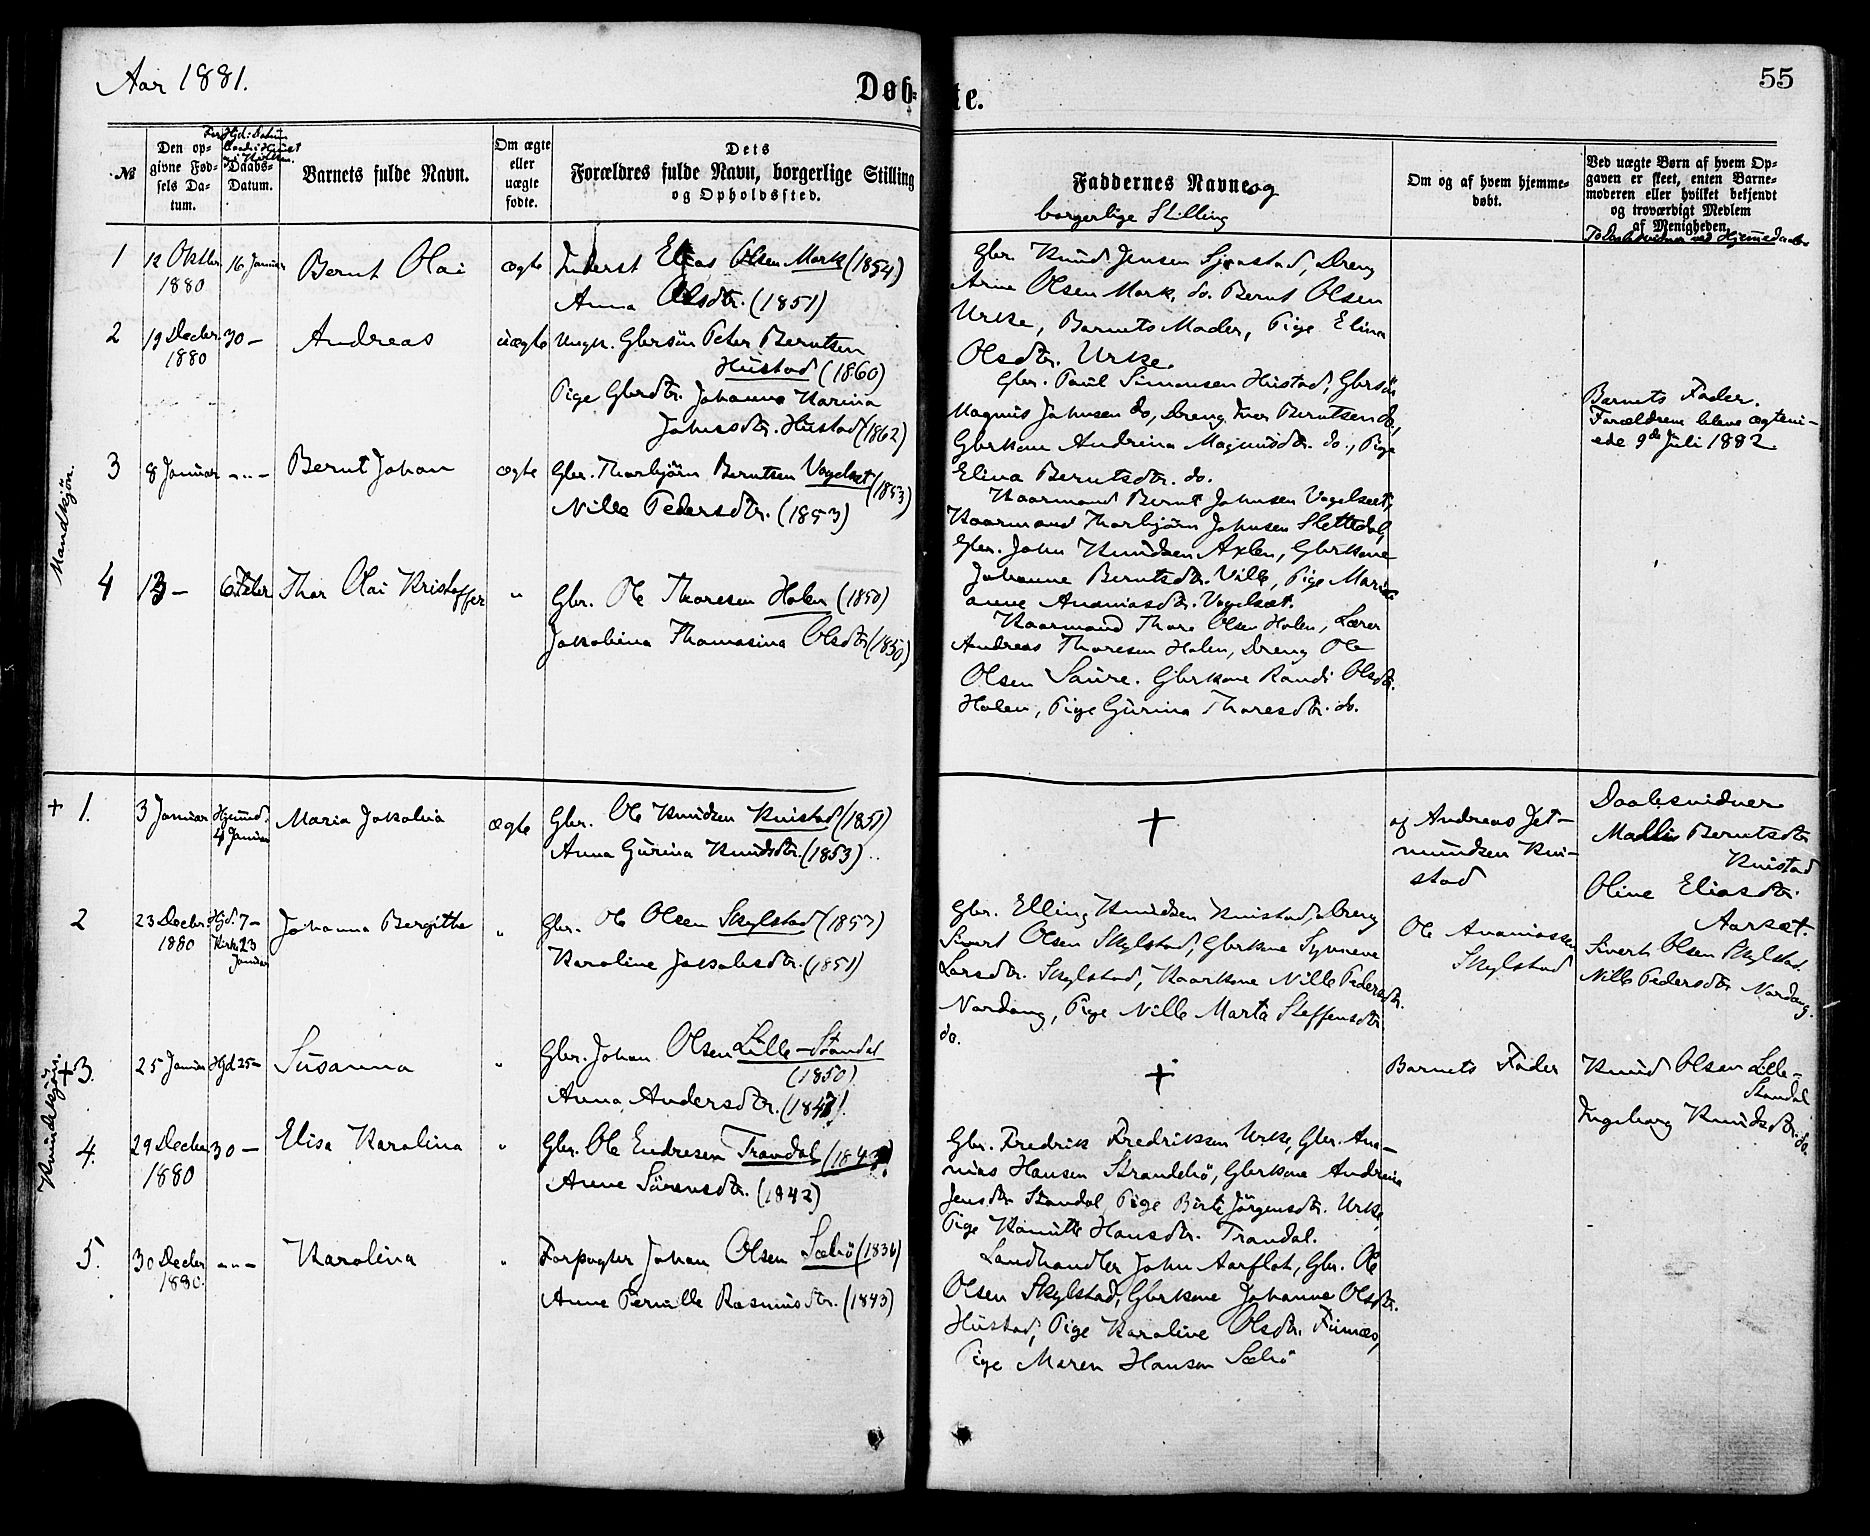 Aar 1881.
Døb-
te.
55
№
Den op-
givne Fød-
sels Da-
tum.
Daabs-
Datum.
Barnets fulde Navn.
Om ægte
eller
uægte
fødte.
Dets
Forældres fulde Navn, borgerlige Stilling
og Opholdssted.
Faddernes Navne og
borgerlige Stilling
Om og af hvem hjemme-
døbt.
Ved uægte Børn af hvem Op-
gaven er skeet, enten Barne-
moderen eller hvilket bekjendt
og troværdigt Medlem
af Menigheden.
Mandkjøn.
1
12 Oktbr
1880
16 Januar
Bernt Olai
ægte
Inderst Elias Olsen Mork (1854)
Anna Olsdtr. (1851)
Gbr. Knud Jensen Sjøastad, Dreng
Arne Olsen Mork, do. Bernt Olsen
Urke, Barnets Moder, Pige Elina
Olsdtr. Urke.
2
19 Decbr.
1880
30 –
Andreas
uægte
Ungk. Gbrsøn Peter Berntsen
Hustad (1860)
Pige Gbrdtr. Johanna Karina
Johnsdtr. Hustad (1862)
Gbr. Poul Simonsen Hustad, Gbrsøn
Magnus Johnsen do, Dreng Iver Berntsen do,
Gbrkone Andrina Magnusdtr. do., Pige
Elina Berntsdtr. do.
Barnets Fader.
Forældrene bleve ægtevi-
ede 9de Juli 1882
3
8 Januar
-"-
Bernt Johan
ægte
Gbr. Thorbjørn Berntsen Vogelsæt (1853)
Nille Pedersdtr. (1853)
Kaarmand Bernt Johnsen Vogelsæt,
Kaarmand Thorbjørn Johnsen Slettedal,
Gbr. John Knudsen Axlen, Gbrkone
Johanne Berntsdtr. Ville, Pige Marie
anne Ananiasdtr. Vogelsæt.
4
13 –
6 Febr
Thor Olai Kristoffer
"
Gbr. Ole Thoresen Holen (1850)
Jakobina Thomasina Olsdtr (1850)
Kaarmand Thore Olsen Holen, Lærer
Andreas Thoresen Holen, Dreng Ole
Olsen Saure. Gbrkone Randi Olsdtr.
Holen, Pige Gurina Thoresdtr. do.
Kvindekjøn.
+ 1.
3 Januar
Hjemmd.
4 Januar
Maria Jakobia
ægte
Gbr. Ole Knudsen Knistad (1851)
Anna Gurina Knudsdtr. (1853)
+
af Andreas Jet-
mundsen Kni-
stad
Daabsvidner
Mallin Berntsdtr
Knistad
Oline Eliasdtr.
Aarsæt.
2
23 Decbr.
1880
Hjd. 7 –
Kirke 23
Januar
Johanna Bergitha
"
Gbr. Ole Olsen Skylstad (1857)
Karoline Jakobsdtr. (1851)
Gbr. Elling Knudsen Knistad, Dreng
Sivert Olsen Skylstad, Gbrkone Synneve
Larsdtr. Skylstad, Kaarkone Nille Pedersdtr.
Nordang, Pige Nille Marta Steffensdtr.
do.
Ole Ananiassen
Skylstad
Sivert Olsen Skylstad.
Nille Pedersdtr Nordang.
+3.
25 Januar
Hjd 25 –
Susanna
"
Gbr. Johan Olsen Lille-Standal
(1850)
Anna Andersdtr.
+
Barnets Fader
Knud Olsen Lille-
Standal
Ingeborg Knudsdtr. do.
4.
29 Decbr
1880
30 –
Elisa Karolina
"
Gbr. Ole Endresen Trandal
Anne Sørensdtr. (1842)
Gbr. Fredrik Fredriksen Urke, Gbr. Ana-
nias Hansen Strandebø, Gbrkone Andreia
Jensdtr Standal, Pige Birte Jørgensdtr. Urke,
Pige Kanutte Hansdtr. Trandal.
5.
30 Decbr
1880.
-"-
Karolina
"
Forpagter Johan Olsen Sæbø (1836)
Anne Pernille Rasmusdtr. (1843)
Landhandler John Aarflot, Gbr. Ole
Olsen Skylstad, Gbrkone Johanne Olsdtr.
Hustad, Pige Karoline Olsdtr. Finnæs,
Pige Maren Hansen Sæbø